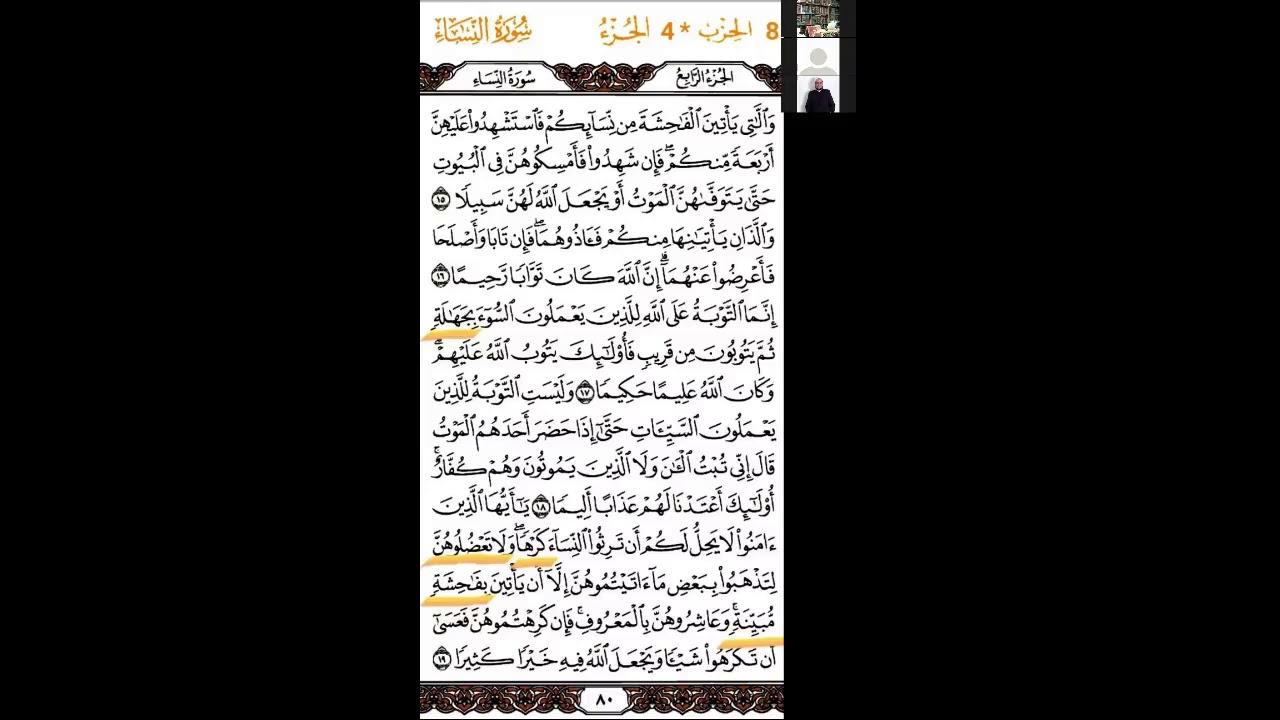 سُورَةُ النِّسَاءِ الجُزْءُ 4 * الحِزْبُ 8
سُورَةُ النِّسَاءِ الجُزْءُ الرَّابِعُ
وَٱلَّٰتِى يَأْتِينَ ٱلْفَٰحِشَةَ مِن نِّسَآئِكُمْ فَٱسْتَشْهِدُوا۟ عَلَيْهِنَّ
أَرْبَعَةً مِّنكُمْ ۖ فَإِن شَهِدُوا۟ فَأَمْسِكُوهُنَّ فِى ٱلْبُيُوتِ
حَتَّىٰ يَتَوَفَّىٰهُنَّ ٱلْمَوْتُ أَوْ يَجْعَلَ ٱللَّهُ لَهُنَّ سَبِيلًا ١٥
وَٱلَّذَانِ يَأْتِيَٰنِهَا مِنكُمْ فَـَٔاذُوهُمَا ۖ فَإِن تَابَا وَأَصْلَحَا
فَأَعْرِضُوا۟ عَنْهُمَآ ۗ إِنَّ ٱللَّهَ كَانَ تَوَّابًا رَّحِيمًا ١٦
إِنَّمَا ٱلتَّوْبَةُ عَلَى ٱللَّهِ لِلَّذِينَ يَعْمَلُونَ ٱلسُّوٓءَ بِجَهَٰلَةٍ
ثُمَّ يَتُوبُونَ مِن قَرِيبٍ فَأُو۟لَٰٓئِكَ يَتُوبُ ٱللَّهُ عَلَيْهِمْ ۗ
وَكَانَ ٱللَّهُ عَلِيمًا حَكِيمًا ١٧ وَلَيْسَتِ ٱلتَّوْبَةُ لِلَّذِينَ
يَعْمَلُونَ ٱلسَّيِّـَٔاتِ حَتَّىٰٓ إِذَا حَضَرَ أَحَدَهُمُ ٱلْمَوْتُ
قَالَ إِنِّى تُبْتُ ٱلْـَٰٔنَ وَلَا ٱلَّذِينَ يَمُوتُونَ وَهُمْ كُفَّارٌ ۚ
أُو۟لَٰٓئِكَ أَعْتَدْنَا لَهُمْ عَذَابًا أَلِيمًا ١٨ يَٰٓأَيُّهَا ٱلَّذِينَ
ءَامَنُوا۟ لَا يَحِلُّ لَكُمْ أَن تَرِثُوا۟ ٱلنِّسَآءَ كَرْهًا ۖ وَلَا تَعْضُلُوهُنَّ
لِتَذْهَبُوا۟ بِبَعْضِ مَآ ءَاتَيْتُمُوهُنَّ إِلَّآ أَن يَأْتِينَ بِفَٰحِشَةٍ
مُّبَيِّنَةٍ ۚ وَعَاشِرُوهُنَّ بِٱلْمَعْرُوفِ ۚ فَإِن كَرِهْتُمُوهُنَّ فَعَسَىٰٓ
أَن تَكْرَهُوا۟ شَيْـًٔا وَيَجْعَلَ ٱللَّهُ فِيهِ خَيْرًا كَثِيرًا ١٩
٨٠